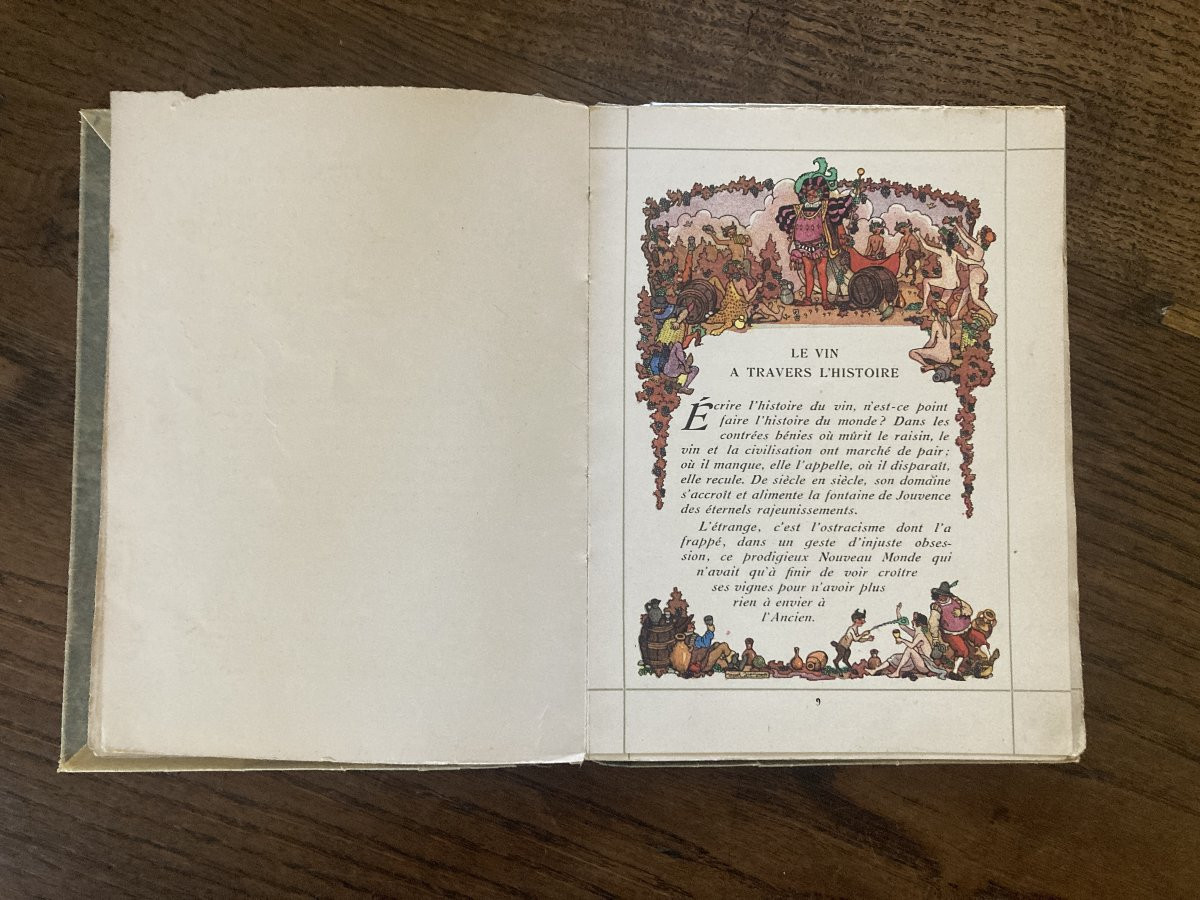 LE VIN
A TRAVERS L'HISTOIRE
Écrire l'histoire du vin, n'est-ce point
faire l'histoire du monde? Dans les
contrées bénies où mûrit le raisin, le
vin et la civilisation ont marché de pair;
où il manque, elle l'appelle, où il disparaît,
elle recule. De siècle en siècle, son domaine
s'accroît et alimente la fontaine de Jouvence
des éternels rajeunissements.
L'étrange, c'est l'ostracisme dont l'a
frappé, dans un geste d'injuste obses-
sion, ce prodigieux Nouveau Monde qui
n'avait qu'à finir de voir croître
ses vignes pour n'avoir plus
rien à envier à
l'Ancien.
9